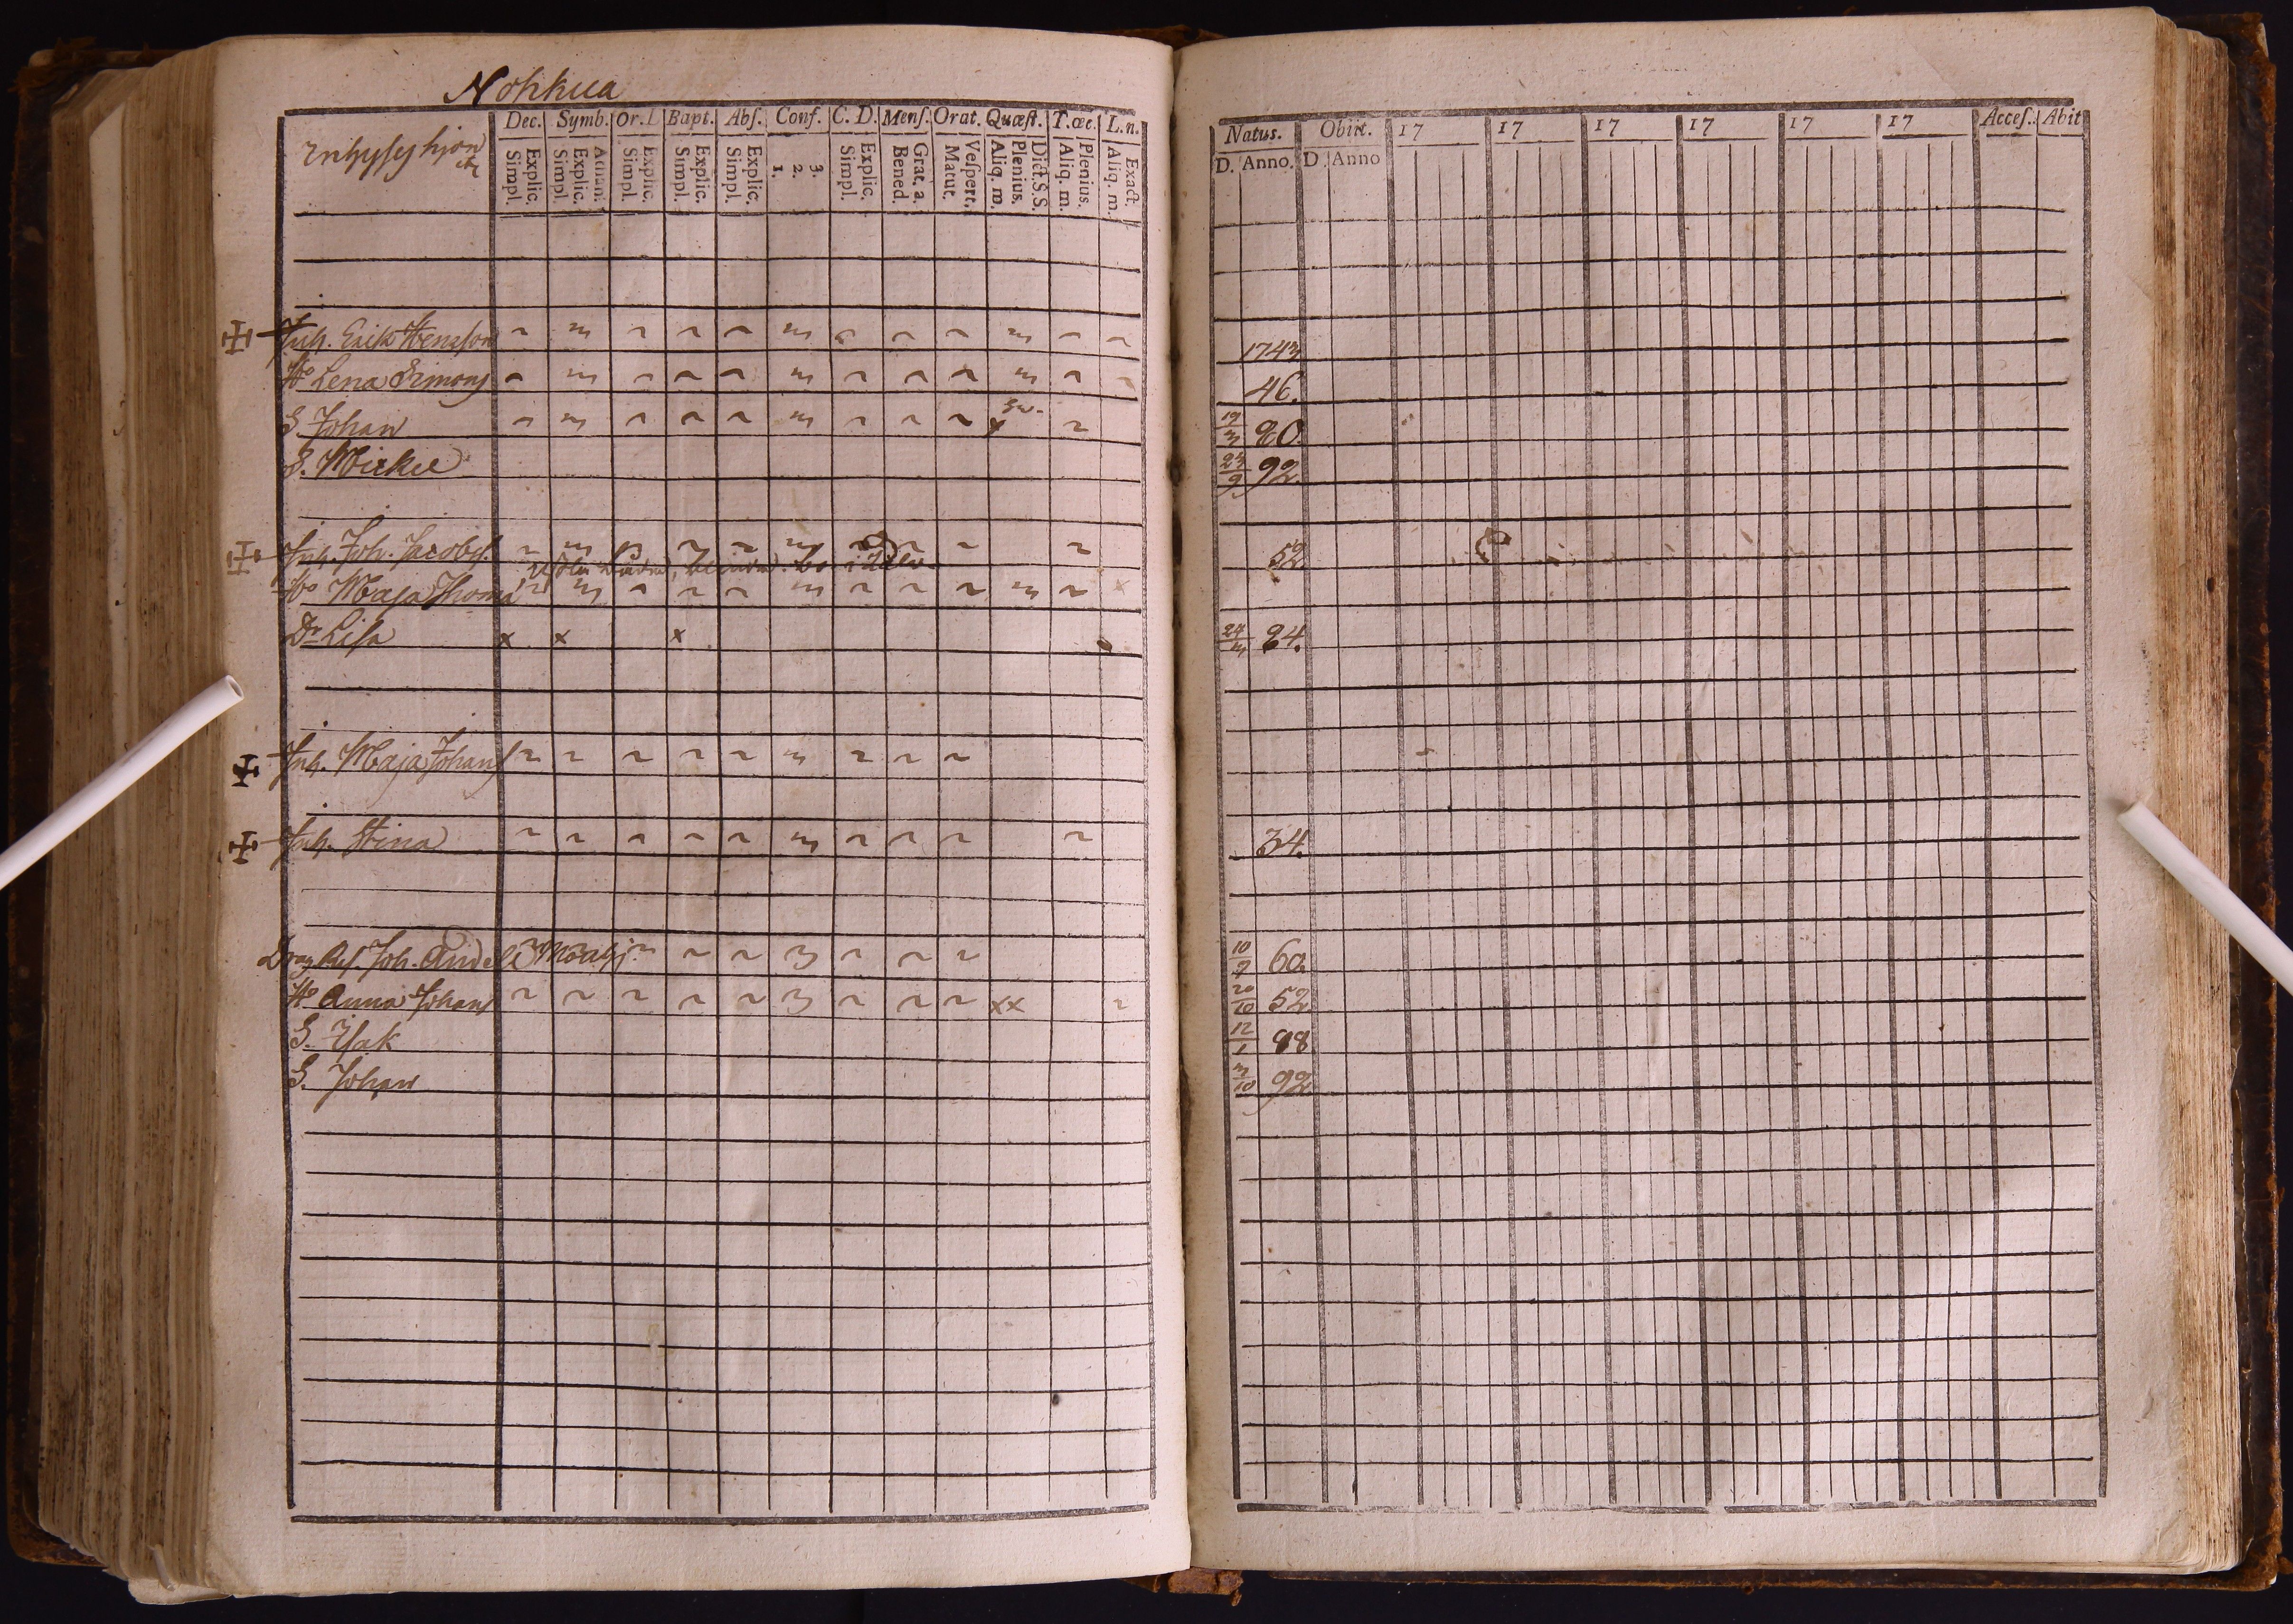 Nohkua
Inhyses hjon
Dec. Symb. Or. D. Bapt. Abs. Conf. C. D. Mens. Orat. Quæst. T. œc. L. n.
Explic. Simpl. Athan. Explic. Simpl. Explic. Simpl. Explic. Simpl. Explic. Simpl. 3. 2. 1. Explic. Simpl. Grat. a. Bened. Vespert. Matut. Dict. S. S. Plenius. Aliq. m. Plenius. Aliq. m. Exact. Aliq. m.
Inh. Erik Hensson
Ho Lena Simons
S. Johan
S. Mickel
Inh. Joh. Jacobss.
Ho Maja Thoma
Dr Lisa x x x
Inh. Maja Johans
Inh. Stina
Drag. Joh.
Ho Anna Johans xx
S. Isak
S. Johan
Natus. Obiit. 17 17 17 17 17 17 Acces. Abit
D. Anno. D. Anno
1743
46.
19/3 80
23/9 92.
52
24/3 84.
34.
10/9 60.
20/10 52.
12/1 88.
3/10 92.